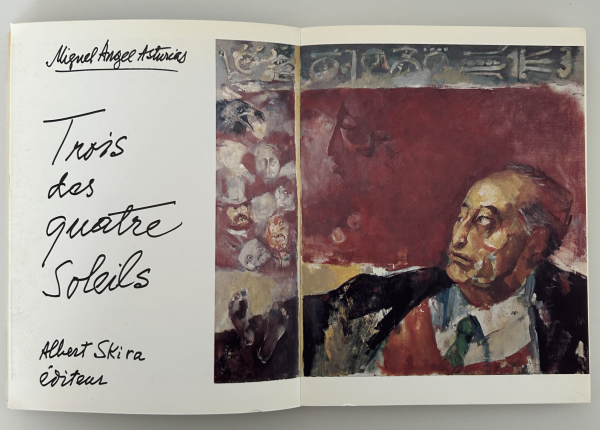 Miguel Angel Asturias
Trois
des
quatre
Soleils
Albert Skira
éditeur